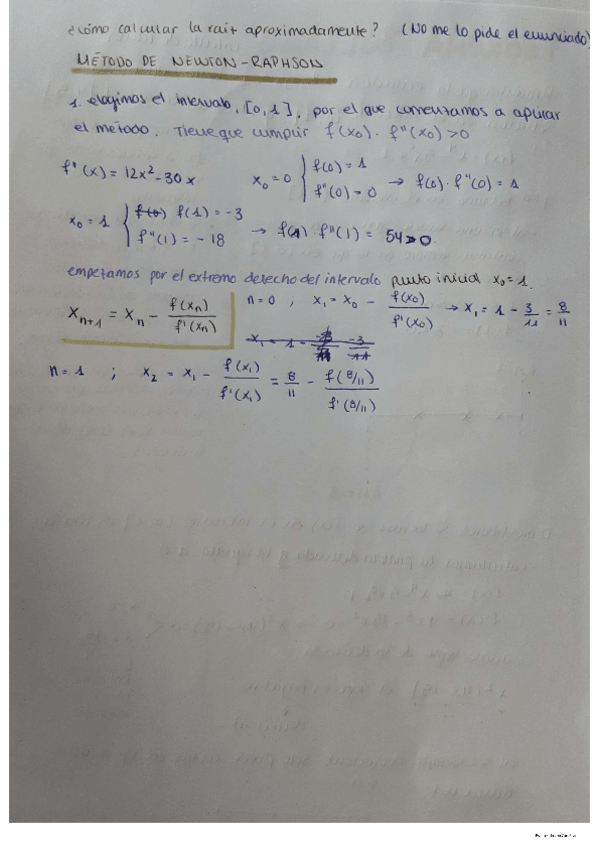 ¿cómo calcular la raiz aproximadamente? (No me lo pide el enunciado)
MÉTODO DE NEWTON-RAPHSON
1. elegimos el intervalo, [0,1], por el que comenzamos a aplicar
el método. Tiene que cumplir f(x₀) · f''(x₀) > 0
f''(x) = 12x² - 30x x₀ = 0 { f(0) = 1 f''(0) = 0 → f(0) · f''(0) = 1
x₀ = 1 { f(0) f(1) = -3 f''(1) = -18 → f(1) · f''(1) = 54 > 0
empezamos por el extremo derecho del intervalo punto inicial x₀ = 1.
xₙ₊₁ = xₙ - f(xₙ)/f'(xₙ) n = 0 ; x₁ = x₀ - f(x₀)/f'(x₀) → x₁ = 1 - 3/11 = 8/11
x₁ = 1 - -3/11
n = 1 ; x₂ = x₁ - f(x₁)/f'(x₁) = 8/11 - f(8/11)/f'(8/11)